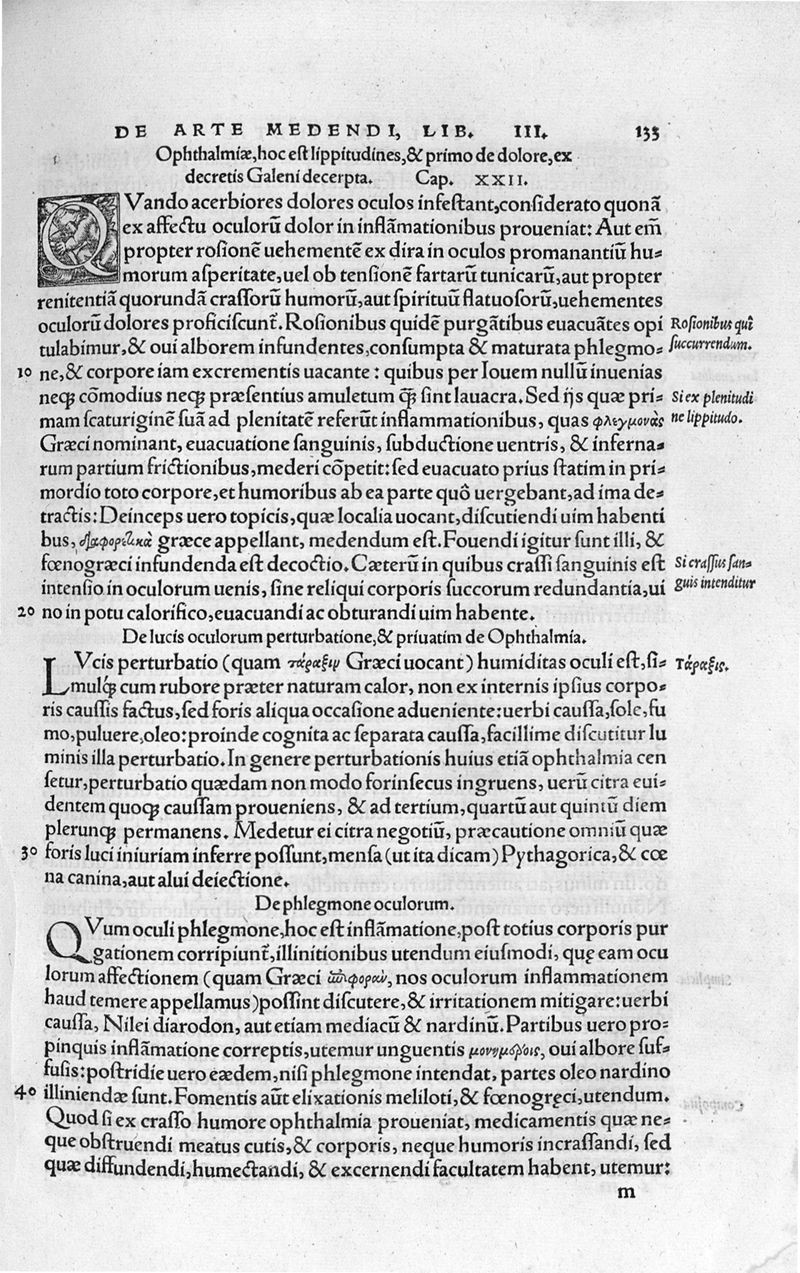 DE ARTE MEDENDI, LIB. III. 133
Ophthalmiæ, hoc est lippitudines, & primo de dolore, ex
decretis Galeni decerpta. Cap. XXII.
QVando acerbiores dolores oculos infestant, considerato quonã
ex affectu oculorũ dolor in inflãmationibus proueniat: Aut em̃
propter rosionẽ uehementẽ ex dira in oculos promanantiũ hu-
morum asperitate, uel ob tensionẽ fartarũ tunicarũ, aut propter
renitentiã quorundã crassorũ humorũ, aut spirituũ flatuosorũ, uehementes
oculorũ dolores proficiscunt̃. Rosionibus quidẽ purgãtibus euacuãtes opi
Rosionibus quĩ
tulabimur, & oui alborem infundentes, consumpta & maturata phlegmo-
succurrendum.
10 ne, & corpore iam excrementis uacante: quibus per Iouem nullũ inuenias
neqꝫ cõmodius neqꝫ præsentius amuletum q̃ꝫ sint lauacra. Sed ijs quæ pri-
Si ex plenitudi
mam scaturiginẽ suã ad plenitatẽ referũt inflammationibus, quas φλεγμονὰς
ne lippitudo.
Græci nominant, euacuatione sanguinis, subductione uentris, & inferna-
rum partium frictionibus, mederi cõpetit: sed euacuato prius statim in pri-
mordio toto corpore, et humoribus ab ea parte quô uergebant, ad ima de-
tractis: Deinceps uero topicis, quæ localia uocant, discutiendi uim habenti
bus, διαφορετικὰ græce appellant, medendum est. Fouendi igitur sunt illi, &
fœnogræci infundenda est decoctio. Cæterũ in quibus crassi sanguinis est
Si crassus san-
intensio in oculorum uenis, sine reliqui corporis succorum redundantia, ui
guis intenditur
20 no in potu calorifico, euacuandi ac obturandi uim habente.
De lucis oculorum perturbatione, & priuatim de Ophthalmia.
LVcis perturbatio (quam τάραξιν Græci uocant) humiditas oculi est, si-
Τάραξις.
mulqꝫ cum rubore præter naturam calor, non ex internis ipsius corpo-
ris caussis factus, sed foris aliqua occasione adueniente: uerbi caussa, sole, fu
mo, puluere, oleo: proinde cognita ac separata caussa, facillime discutitur lu
minis illa perturbatio. In genere perturbationis huius etiã ophthalmia cen
setur, perturbatio quædam non modo forinsecus ingruens, uerũ citra eui-
dentem quoqꝫ caussam proueniens, & ad tertium, quartũ aut quintũ diem
plerunqꝫ permanens. Medetur ei citra negotiũ, præcautione omniũ quæ
30 foris luci iniuriam inferre possunt, mensa (ut ita dicam) Pythagorica, & cœ
na canina, aut alui deiectione.
De phlegmone oculorum.
QVum oculi phlegmone, hoc est inflãmatione, post totius corporis pur
gationem corripiunt̃, illinitionibus utendum eiusmodi, quę eam ocu
lorum affectionem (quam Græci nos oculorum inflammationem
haud temere appellamus) possint discutere, & irritationem mitigare: uerbi
caussa, Nilei diarodon, aut etiam mediacũ & nardinũ. Partibus uero pro-
pinquis inflãmatione correptis, utemur unguentis oui albore suf-
fusis: postridie uero eædem, nisi phlegmone intendat, partes oleo nardino
40 illiniendæ sunt. Fomentis aũt elixationis meliloti, & fœnogręci, utendum.
Quod si ex crasso humore ophthalmia proueniat, medicamentis quæ ne-
que obstruendi meatus cutis, & corporis, neque humoris incrassandi, sed
quæ diffundendi, humectandi, & excernendi facultatem habent, utemur:
m